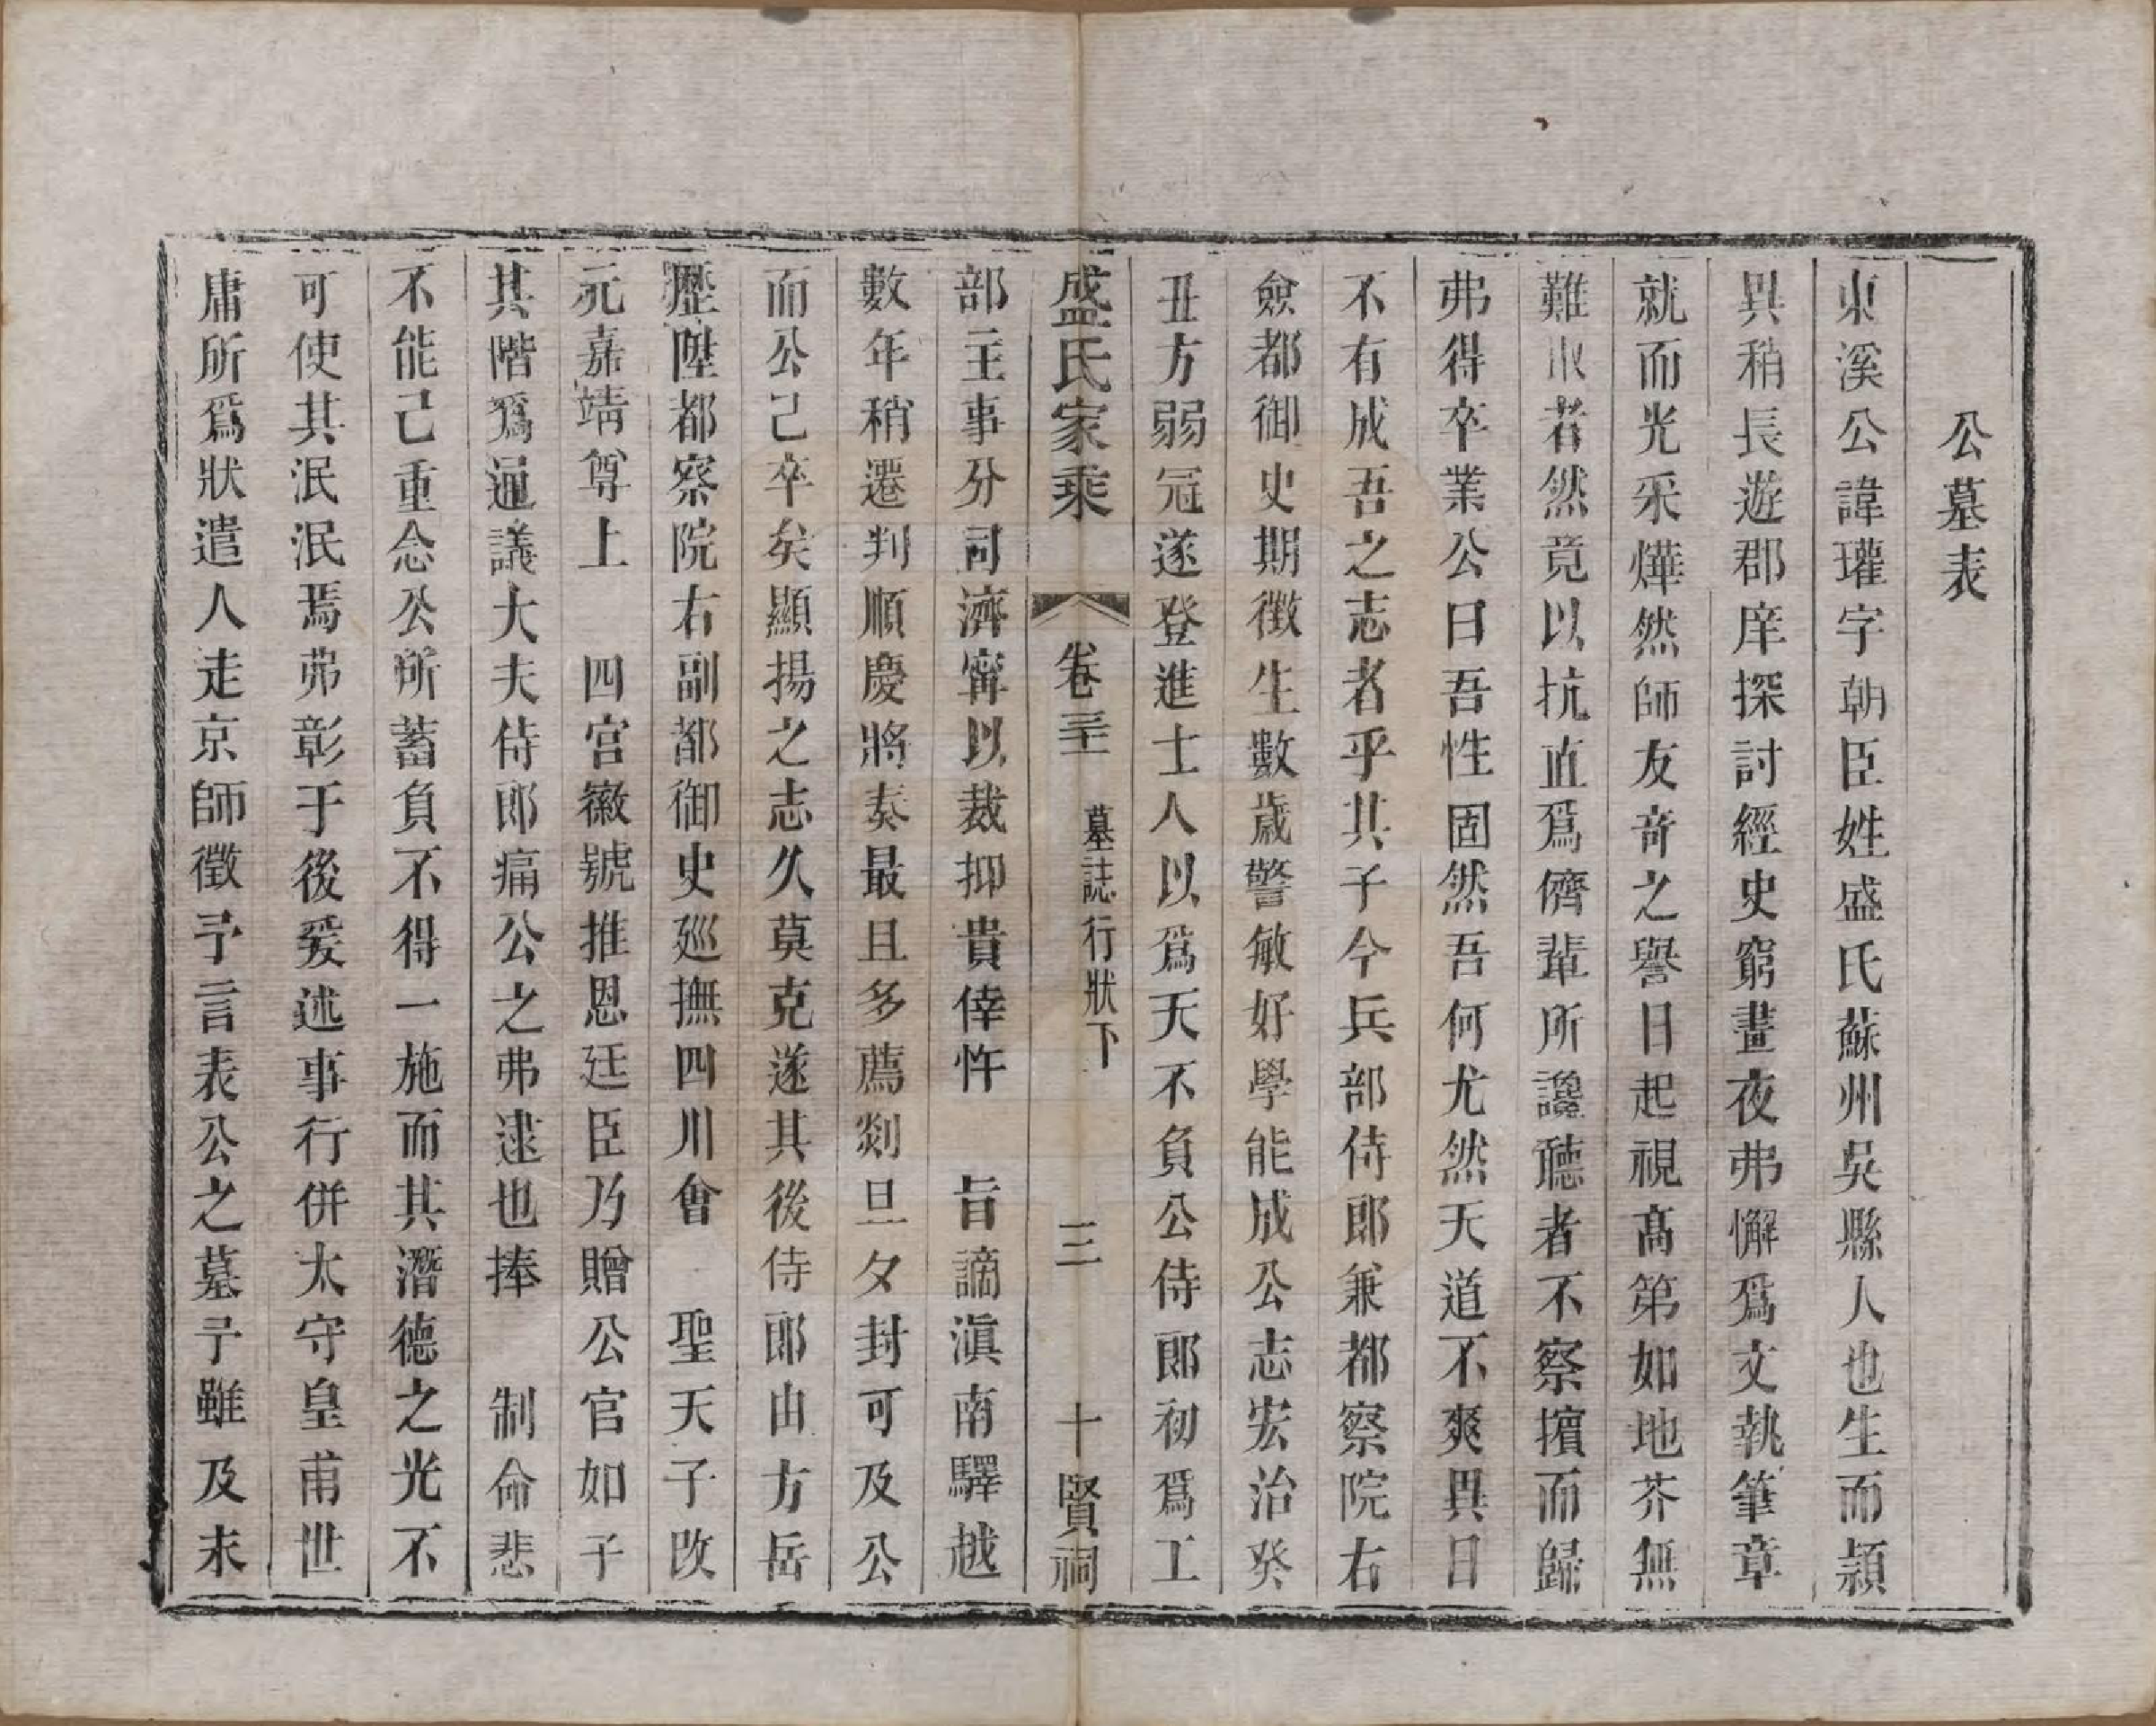 公墓表
東溪公諱瓘字朝臣姓盛氏蘇州吳縣人也生而穎
異稍長遊郡庠探討經史窮晝夜弗懈爲文執筆章
就而光采燁然師友奇之譽日起視高第如地芥無
難取者然竟以抗直爲儕輩所讒聽者不察擯而歸
弗得卒業公曰吾性固然吾何尤然天道不爽異日
不有成吾之志者乎其子今兵部侍郎兼都察院右
僉都御史期徵生數歲警敏好學能成公志宏治癸
丑方弱冠遂登進士人以爲天不負公侍郎初爲工
盛氏家乘 卷三 墓誌行狀下 三 十賢祠
部主事分司濟甯以裁抑貴倖忤 旨謫滇南驛越
數年稍遷判順慶將奏最且多薦剡旦夕封可及公
而公已卒矣顯揚之志久莫克遂其後侍郎由方岳
歷陞都察院右副都御史巡撫四川會 聖天子改
元嘉靖尊上 四宮徽號推恩廷臣乃贈公官如子
其階爲通議大夫侍郎痛公之弗逮也捧 制命悲
不能已重念公所蓄負不得一施而其潛德之光不
可使其泯泯焉弗彰于後爰述事行併太守皇甫世
庸所爲狀遣人走京師徵予言表公之墓予雖及未